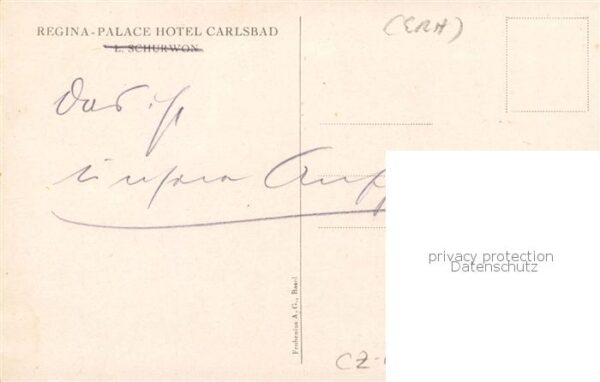 REGINA-PALACE HOTEL CARLSBAD
L. SCHURWON
(ERH)
Das ist
unsere
privacy protection
Datenschutz
Frobenius A. G., Basel
CZ-